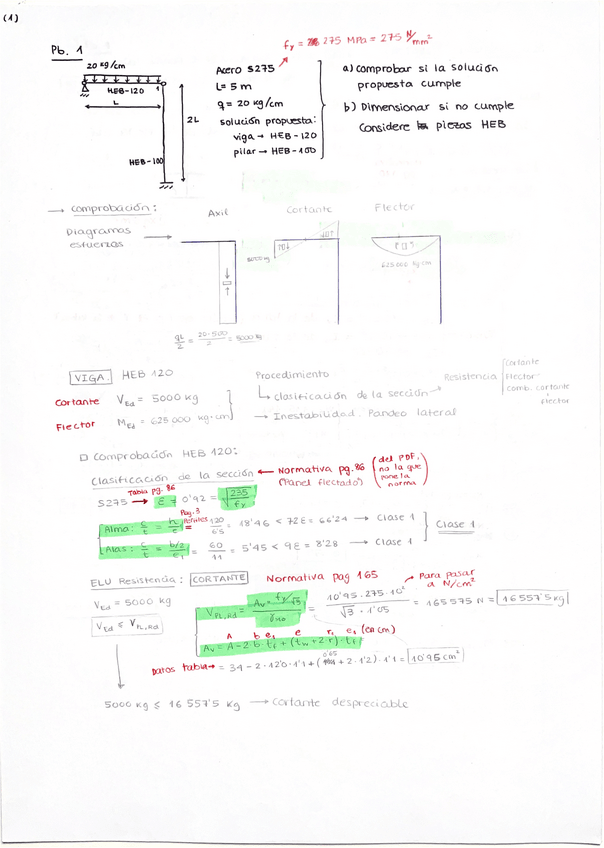 (1)
fy = 275 MPa = 275 N/mm²
Pb. 1
20 kg/cm
HEB-120 1
L
2L
HEB-100
Acero S275
L = 5 m
q = 20 kg/cm
solución propuesta:
viga → HEB-120
pilar → HEB-100
a) Comprobar si la solución
propuesta cumple
b) Dimensionar si no cumple
Considere piezas HEB
→ Comprobación:
Diagramas
esfuerzos
Axil
Cortante
Flector
5000 kg
625000 kg·cm
qL/2 = 20·500/2 = 5000 kg
VIGA HEB 120
Cortante VEd = 5000 kg
Flector MEd = 625000 kg·cm
Procedimiento
↳ Clasificación de la sección
→ Inestabilidad. Pandeo lateral
Resistencia
Cortante
Flector
comb. cortante
flector
□ Comprobación HEB 120:
Clasificación de la sección ← Normativa pg.86
(Panel flectado)
(del PDF, no la que pone la norma)
Tabla pg. 86
S275 → ε = 0'92 = √235/fy
Pag. 3
Alma: c/t = h/e = 120/6'5 = 18'46 < 72ε = 66'24 → Clase 1
Alas: c/t = b/2/e1 = 60/11 = 5'45 < 9ε = 8'28 → Clase 1
Clase 1
ELU Resistencia: CORTANTE Normativa pag 165
Para pasar a N/cm²
VEd = 5000 kg
VEd ≤ VPL,Rd
VPL,Rd = Av · fy/√3 / γM0 = 10'95 · 275 · 10² / √3 · 1'05 = 165575 N = 16557'5 kg
A b e1 e r1 e1 (en cm)
Av = A - 2·b·tf + (tw + 2·r)·tf
Datos tabla → = 34 - 2·12'0·1'1 + (0'65 + 2·1'2)·1'1 = 10'95 cm²
5000 kg ≤ 16557'5 kg → Cortante despreciable